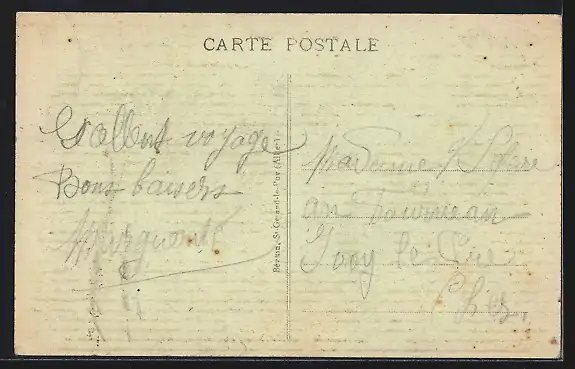 CARTE POSTALE
Excellent voyage
Bons baisers
Marguerite
Bernin, St-Gérand-le-Puy (Allier)
Madame
au Fourneau
Ivoy le Pré
Cher